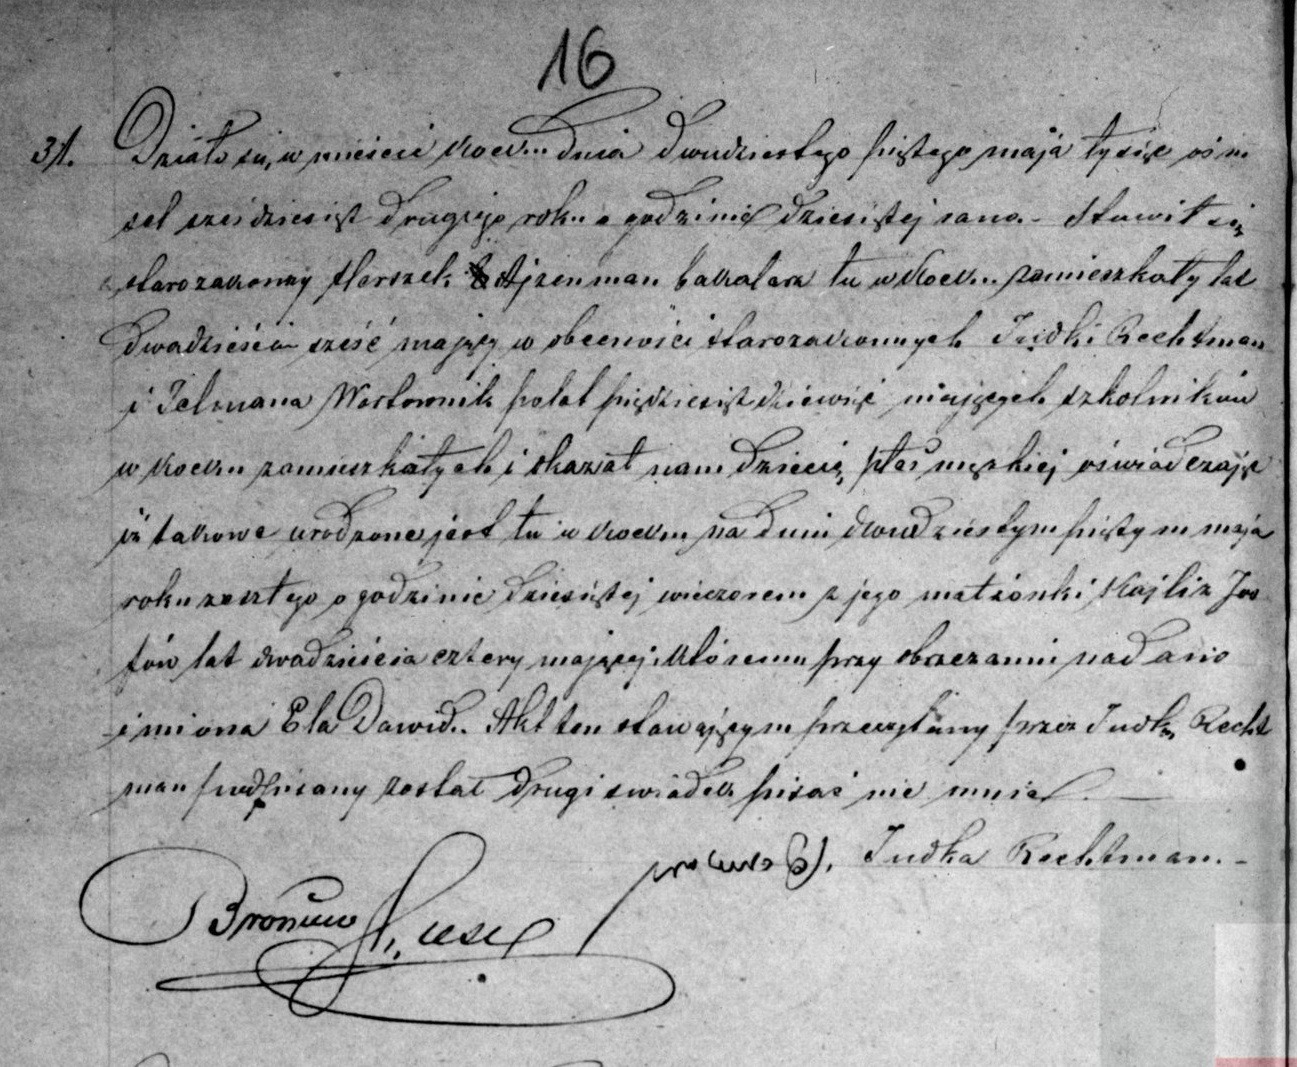 16
31. Działo się, w mieście Kocku dnia dwudziestego piątego maja tysiąc ośm
set sześdziesiąt drugiego roku o godzinie dziesiątej rano. - Stawił się
starozakonny Herszek Ajzenman bakałarz tu w Kocku zamieszkały lat
dwadzieścia sześć mający w obecności starozakonnych Judki Rechtman
i Zelmana Worłownik po lat pięździesiąt dziewięć mających szkolników
w Kocku zamieszkałych i okazał nam dziecię płci męskiej oświadczając
iż takowe urodzone jest tu w Kocku na dniu dwudziestym piątym maja
roku zeszłego o godzinie dziesiątej wieczorem z jego małżonki Kajli z Jos
fów lat dwadzieścia cztery mającej. Któremu przy obrzezaniu nadano
imiona Ela Dawid. Akt ten stawającym przeczytany przez Judkę Recht
man podpisany został drugi świadek pisać nie umie.
Judka Rechtman. -